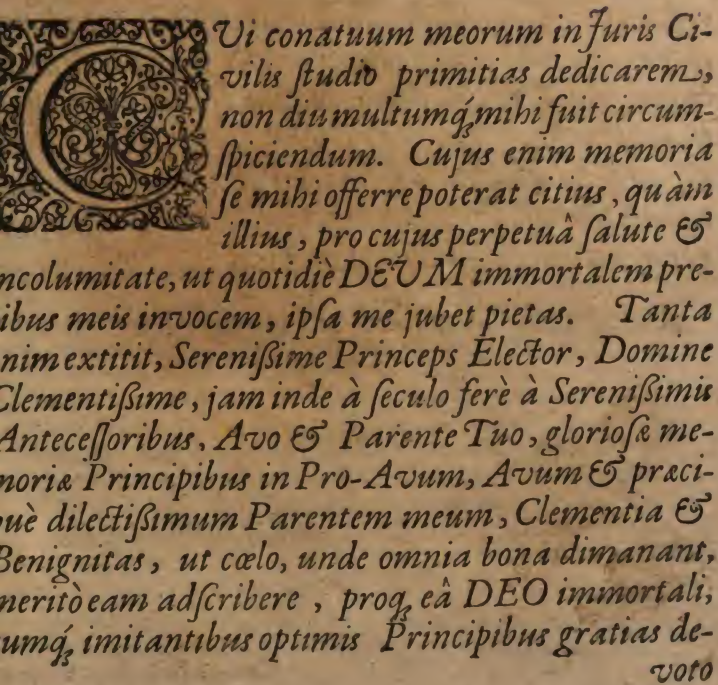 CUi conatuum meorum in Juris Ci-
vilis ſtudio primitias dedicarem,
non diu multumq́; mihi fuit circum-
ſpiciendum. Cujus enim memoria
ſe mihi offerre poterat citius, quàm
illius, pro cujus perpetuâ ſalute &
ncolumitate, ut quotidiè DEUM immortalem pre-
ibus meis invocem, ipſa me jubet pietas. Tanta
nim extitit, Sereniſſime Princeps Elector, Domine
Clementiſſime, jam inde à ſeculo ferè à Sereniſſimis
Anteceſſoribus, Avo & Parente Tuo, glorioſæ me-
moriæ Principibus in Pro-Avum, Avum & præci-
puè dilectiſſimum Parentem meum, Clementia &
Benignitas, ut cœlo, unde omnia bona dimanant,
meritò eam adſcribere, proq; eâ DEO immortali,
umq́; imitantibus optimis Principibus gratias de-
voto